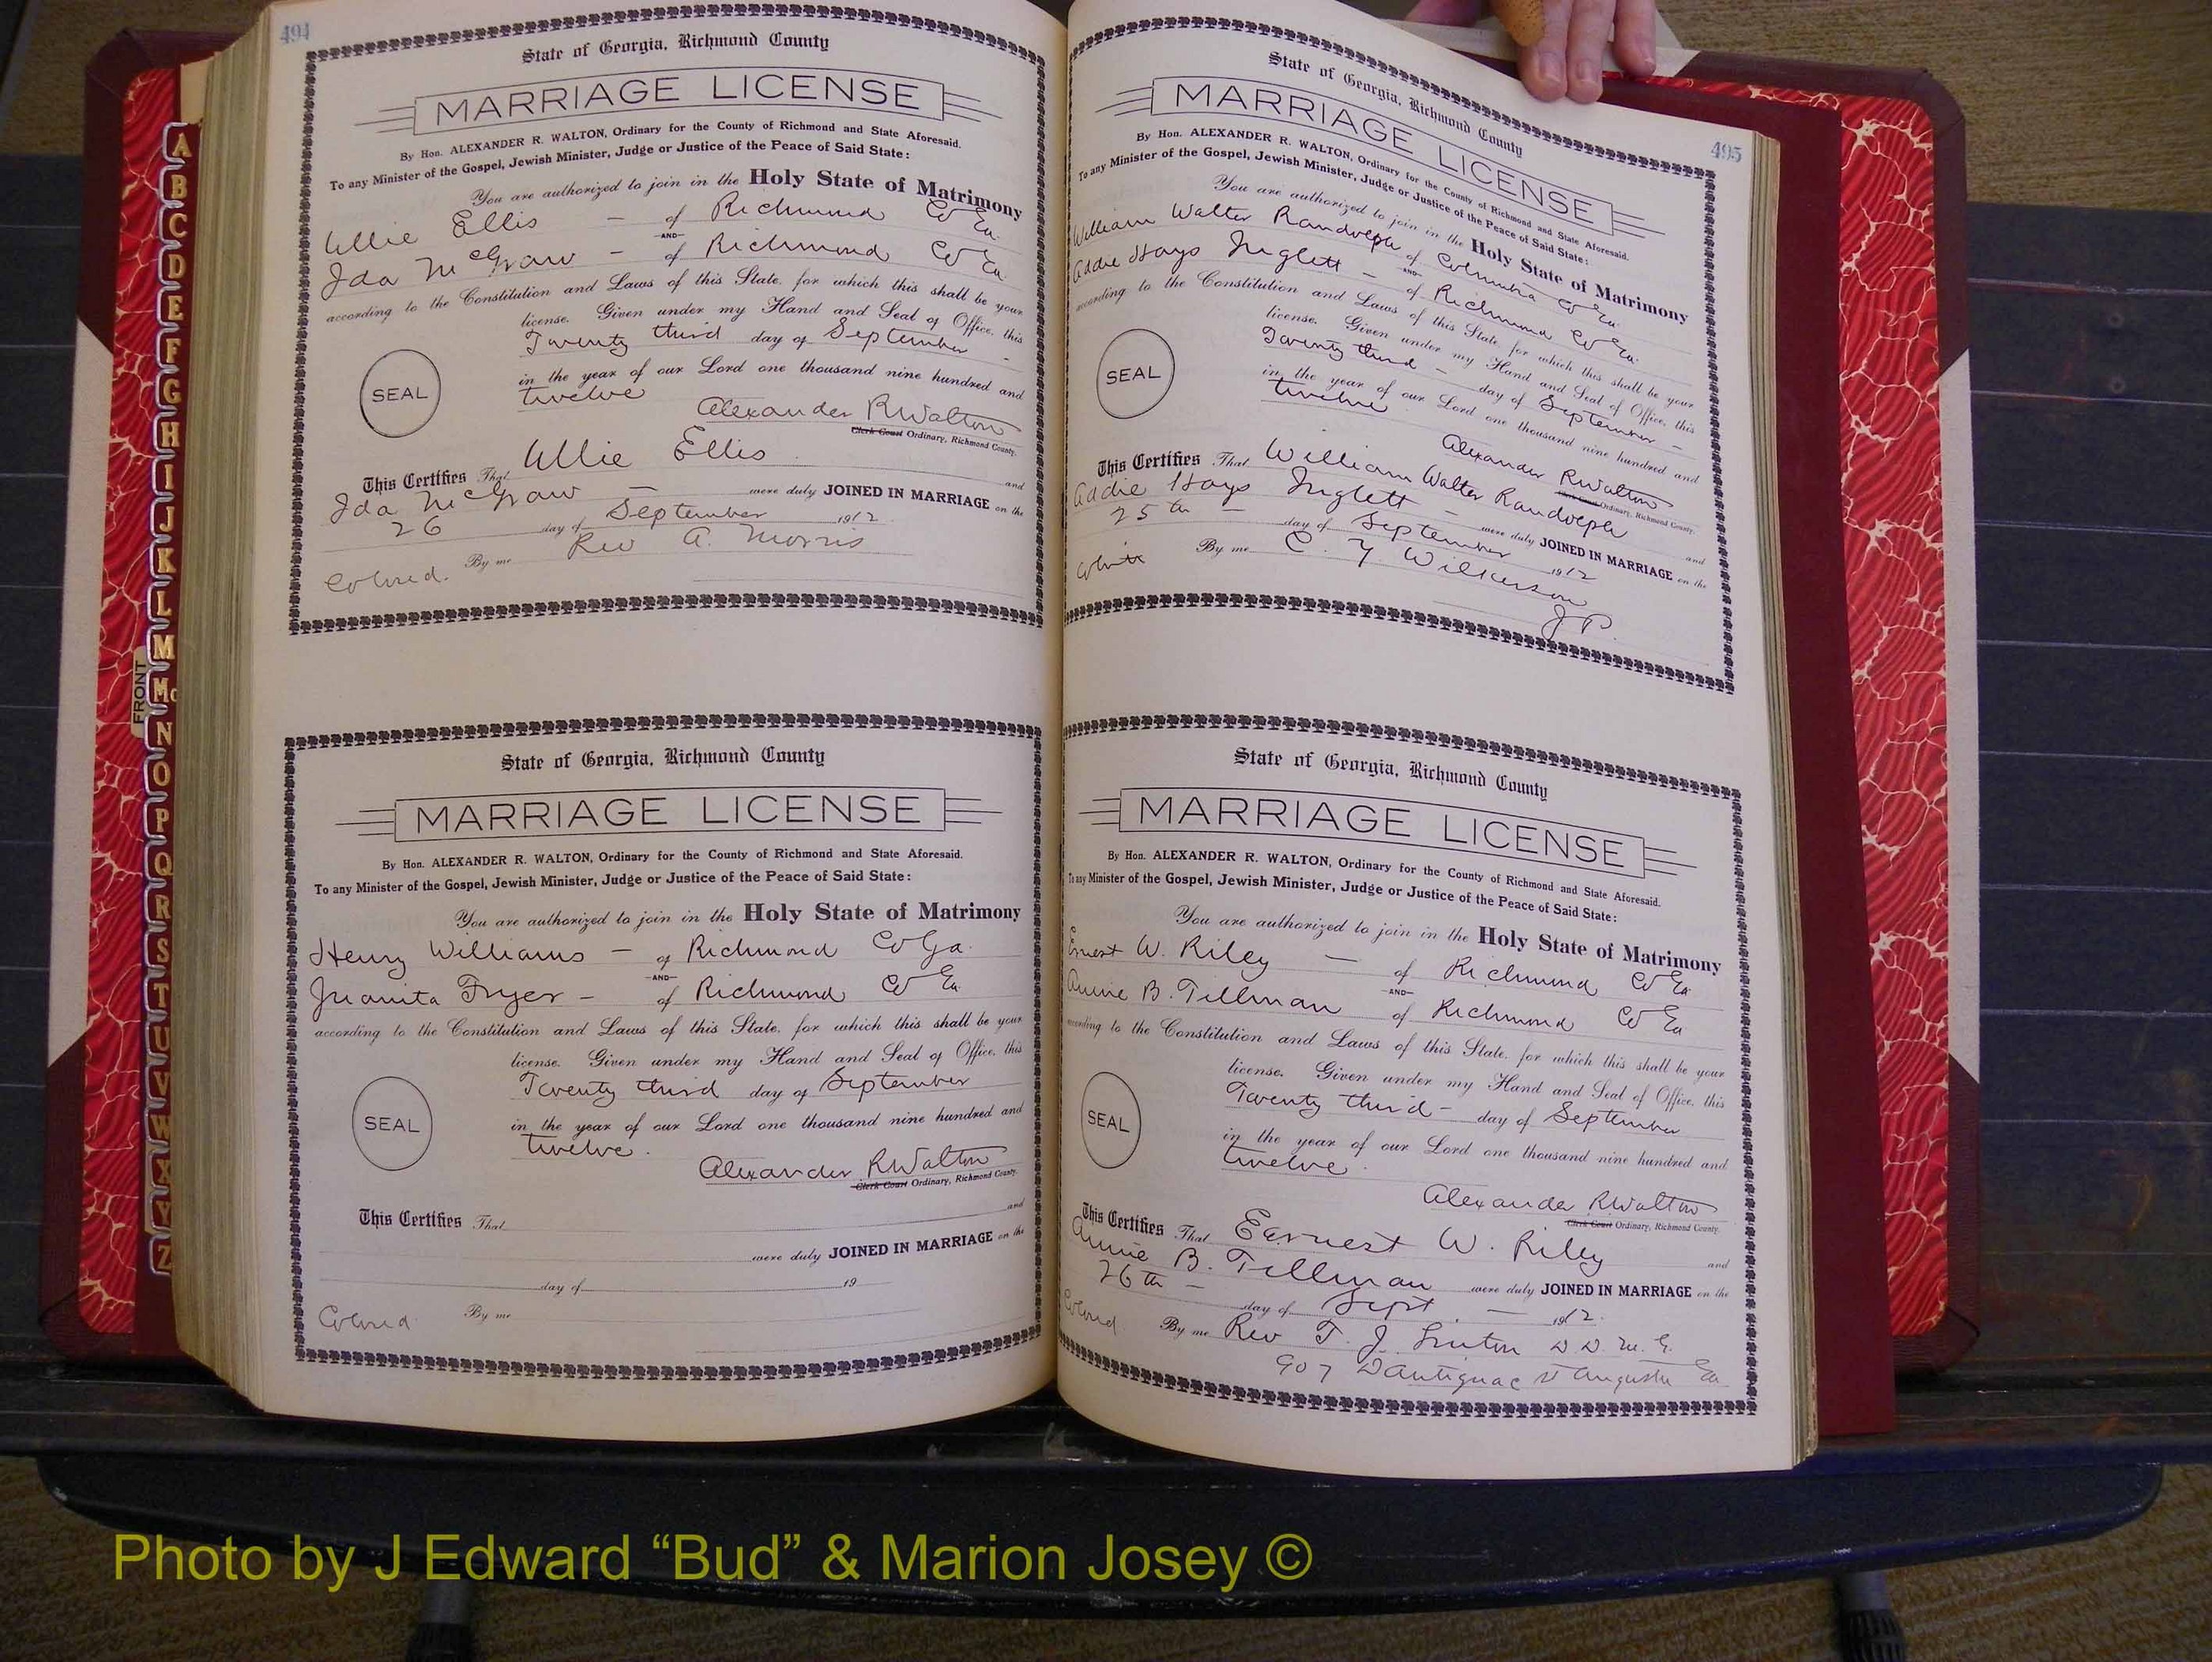 494
State of Georgia, Richmond County
MARRIAGE LICENSE
By Hon. ALEXANDER R. WALTON, Ordinary for the County of Richmond and State Aforesaid.
To any Minister of the Gospel, Jewish Minister, Judge or Justice of the Peace of Said State:
You are authorized to join in the Holy State of Matrimony
Ullie Ellis — of Richmond Co Ga.
AND
Ida McGraw — of Richmond Co Ga
according to the Constitution and Laws of this State, for which this shall be your
license. Given under my Hand and Seal of Office, this
Twenty third day of September —
SEAL
in the year of our Lord one thousand nine hundred and
twelve
Alexander R Walton
Clerk Court Ordinary, Richmond County.
This Certifies That Ullie Ellis and
Ida McGraw — were duly JOINED IN MARRIAGE on the
26 day of September 1912.
By me Rev A. Morris
Colored.
State of Georgia, Richmond County
MARRIAGE LICENSE
By Hon. ALEXANDER R. WALTON, Ordinary for the County of Richmond and State Aforesaid.
To any Minister of the Gospel, Jewish Minister, Judge or Justice of the Peace of Said State:
You are authorized to join in the Holy State of Matrimony
Henry Williams — of Richmond Co Ga.
AND
Juanita Fryer — of Richmond Co Ga
according to the Constitution and Laws of this State, for which this shall be your
license. Given under my Hand and Seal of Office, this
Twenty third day of September
SEAL
in the year of our Lord one thousand nine hundred and
twelve.
Alexander R Walton
Clerk Court Ordinary, Richmond County.
This Certifies That and
were duly JOINED IN MARRIAGE on the
day of 19
Colored By me
495
State of Georgia, Richmond County
MARRIAGE LICENSE
By Hon. ALEXANDER R. WALTON, Ordinary for the County of Richmond and State Aforesaid.
To any Minister of the Gospel, Jewish Minister, Judge or Justice of the Peace of Said State:
You are authorized to join in the Holy State of Matrimony
William Walter Randolph of Columbia Co Ga.
AND
Addie Hays Inglett — of Richmond Co Ga.
according to the Constitution and Laws of this State, for which this shall be your
license. Given under my Hand and Seal of Office, this
Twenty third — day of September —
SEAL
in the year of our Lord one thousand nine hundred and
twelve
Alexander R Walton
Clerk Court Ordinary, Richmond County.
This Certifies That William Walter Randolph and
Addie Hays Inglett — were duly JOINED IN MARRIAGE on the
25th — day of September 1912
White By me C. Y Wilkerson
J P.
State of Georgia, Richmond County
MARRIAGE LICENSE
By Hon. ALEXANDER R. WALTON, Ordinary for the County of Richmond and State Aforesaid.
To any Minister of the Gospel, Jewish Minister, Judge or Justice of the Peace of Said State:
You are authorized to join in the Holy State of Matrimony
Ernest W. Riley — of Richmond Co Ga
AND
Annie B. Tillman of Richmond Co Ga
according to the Constitution and Laws of this State, for which this shall be your
license. Given under my Hand and Seal of Office, this
Twenty third — day of September
SEAL
in the year of our Lord one thousand nine hundred and
twelve.
Alexander R Walton
Clerk Court Ordinary, Richmond County.
This Certifies That Earnest W. Riley and
Annie B. Tillman were duly JOINED IN MARRIAGE on the
26th — day of Sept. — 1912.
Colored By me Rev T. J. Linton D D. M. G.
907 D'Antignac St Augusta Ga
FRONT
A
B
C
D
E
F
G
H
I
J
K
L
M
Mc
N
O
P
Q
R
S
T
U
V
W
X
Y
Z
Photo by J Edward “Bud” & Marion Josey ©